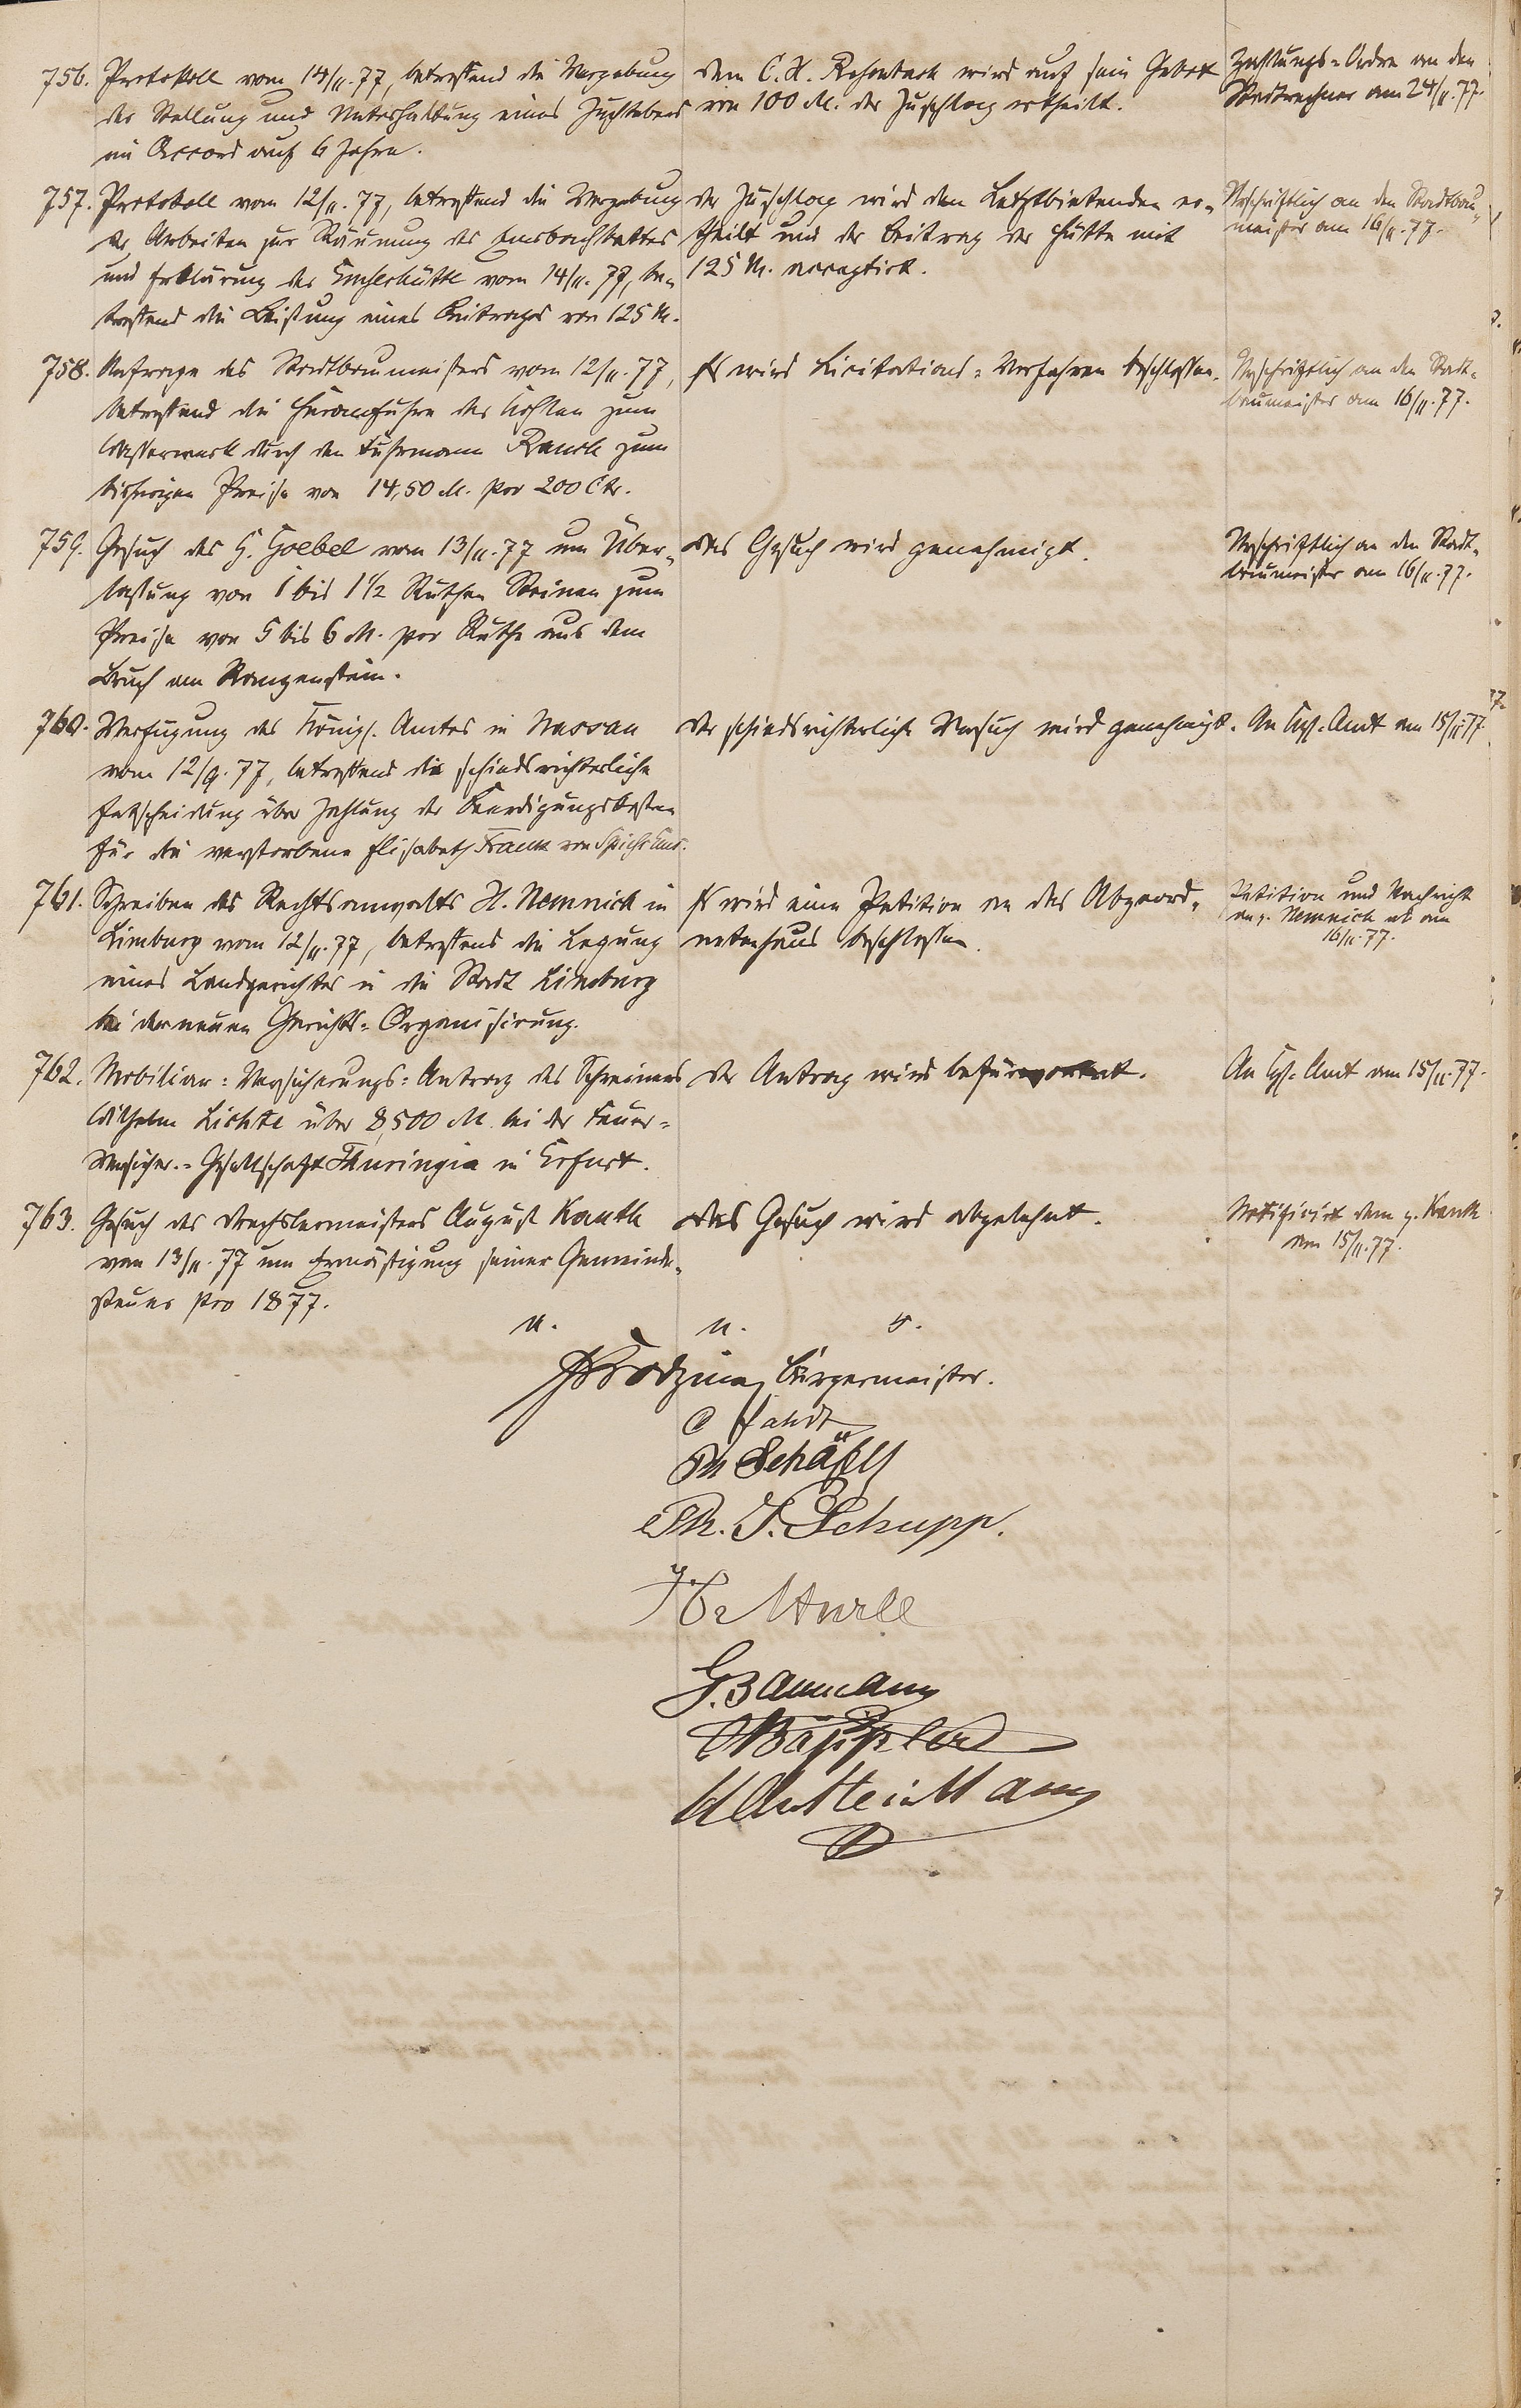 756. Protokoll vom 14/11. 77, betreffend die Vergebung
der Stellung und Unterhaltung eines Zuchtebers
in Accord auf 6 Jahre.
Dem C. H. wird auf sein Gebot
von 100 M. der Zuschlag ertheilt.
Zahlungs-Ordre an den
Stadtrechner am 24/11. 77.
757. Protokoll vom 12/11. 77, betreffend die Vergebung
der Arbeiten zur Räumung des Emsbachbettes
und Erklärung der Emserhütte vom 14/11. 77, be-
treffend die Leistung eines Beitrages von 125 M.
Der Zuschlag wird dem Letztbietenden er-
theilt und der Beitrag der Hütte mit
125 M. acceptirt.
Urschriftlich an den Stadtbau-
meister am 16/11. 77.
758. Anfrage des Stadtbaumeisters vom 12/11. 77,
betreffend die Heranfuhre der Kohlen zum
Wasserwerk durch den Fuhrmann zum
bisherigen Preise von 14,50 M. pro 200 Ctr.
Es wird Licitations-Verfahren beschlossen.
Urschriftlich an den Stadt-
baumeister am 16/11. 77.
759. Gesuch des H. Goebel vom 13/11. 77 um Über-
lassung von 1 bis 1 1/2 Ruthen Steinen zum
Preise von 5 bis 6 M. pro Ruthe aus dem
Bruch am
Das Gesuch wird genehmigt.
Urschriftlich an den Stadt-
baumeister am 16/11. 77.
760. Verfügung des Königl. Amtes in Nassau
vom 12/9. 77, betreffend die schiedsrichterliche
Entscheidung über Zahlung der Beerdigungskosten
für die verstorbene Elisabeth Frank von Spieß-Ems.
Der schiedsrichterliche Versuch wird genehmigt.
An Kgl. Amt am 15/11. 77
761. Schreiben des Rechtsanwalts H. Nemnich in
Limburg vom 12/11. 77, betreffend die Legung
eines Landgerichtes in die Stadt Limburg
bei der neuen Gerichts-Organisirung.
Es wird eine Petition an das Abgeord-
netenhaus beschlossen.
Petition und Nachricht
an H. Nemnich ab am
16/11. 77.
762. Mobiliar-Versicherungs-Antrag des Schreiners
Wilhelm Lichte über 8,500 M. bei der Feuer-
Versicher.-Gesellschaft Thuringia in Erfurt.
Der Antrag wird befürwortet.
An Kgl. Amt am 15/11. 77.
763. Gesuch des Drechslermeisters August Kauth
vom 13/11. 77 um Ermäßigung seiner Gemeinde-
steuer pro 1877.
Das Gesuch wird abgelehnt.
Notifizirt dem H. Kauth
am 15/11. 77.
u. u. s.
Bürgermeister.
Th Schäfer
Ph. J. Schupp.
G. Baumann